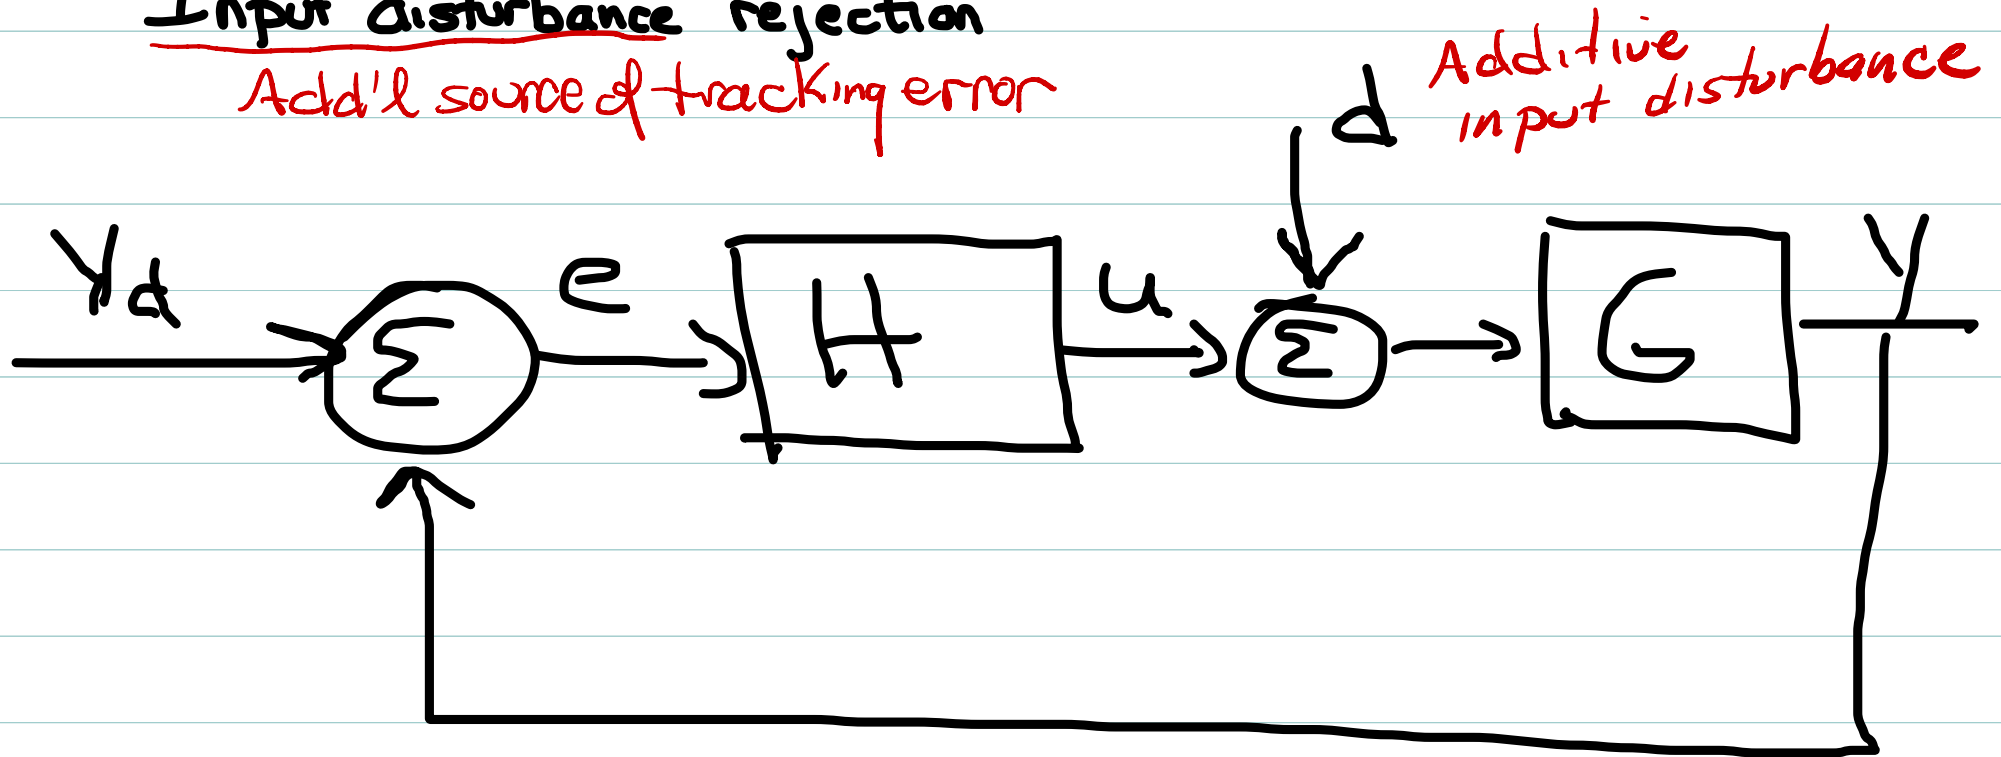 Input disturbance rejection
Add'l source of tracking error
Additive
input disturbance
d
Yd
e
H
u
G
Y
Σ
Σ